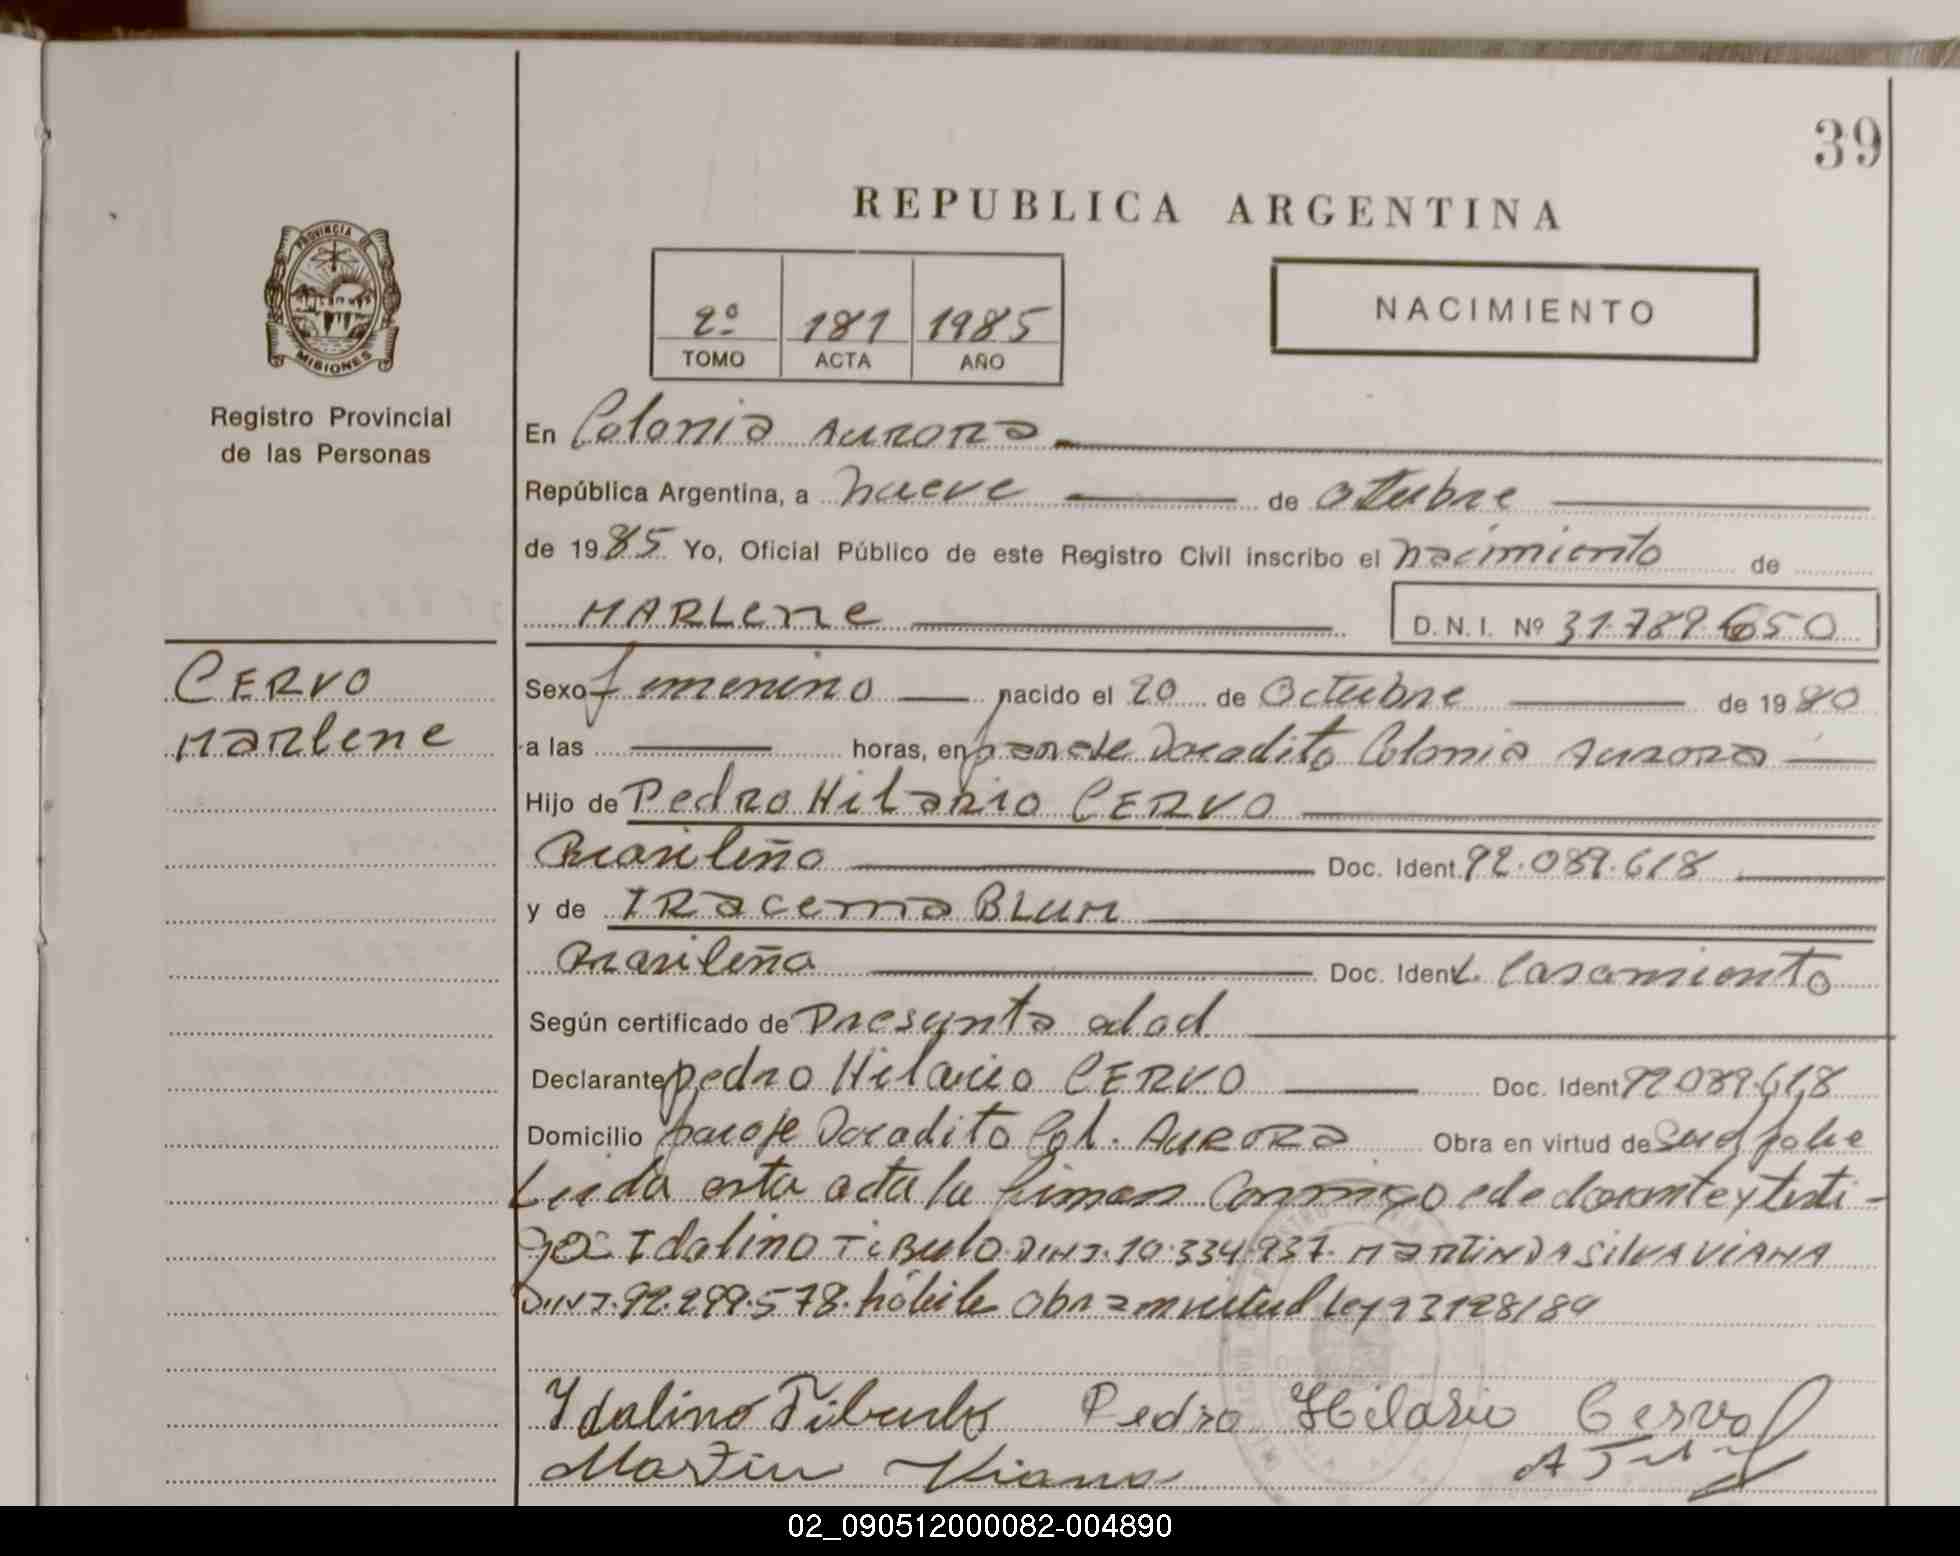 39
REPUBLICA ARGENTINA
PROVINCIA DE
MISIONES
Registro Provincial
de las Personas
2º 181 1985
TOMO ACTA AÑO
NACIMIENTO
En Colonia Aurora
República Argentina, a nueve de octubre
de 1985 Yo, Oficial Público de este Registro Civil inscribo el nacimiento de
MARLene
D.N.I. Nº 31.789.650
CERVO
Marlene
Sexo femenino nacido el 20 de Octubre de 1980
a las horas, en paraje Doradito Colonia Aurora
Hijo de Pedro Hilario CERVO
Brasileño Doc. Ident. 92.089.618
y de IRacema BLUM
Brasileña Doc. Ident. L. Casamiento
Según certificado de Presunta edad
Declarante pedro Hilario CERVO Doc. Ident 92.089.618
Domicilio paraje Doradito Col. AURORA Obra en virtud de
Leida esta acta la firman Conmigo el declarante y testi-
gos Idalino TiBulo D.N.I. 10.334.937. MARTIN DA SILVA VIANA
D.N.I. 92.299.578. hábiles Obra en virtud Ley 23128/84
Idalino Tibulo Pedro Hilario Cervo
Martin Viana
02_090512000082-004890